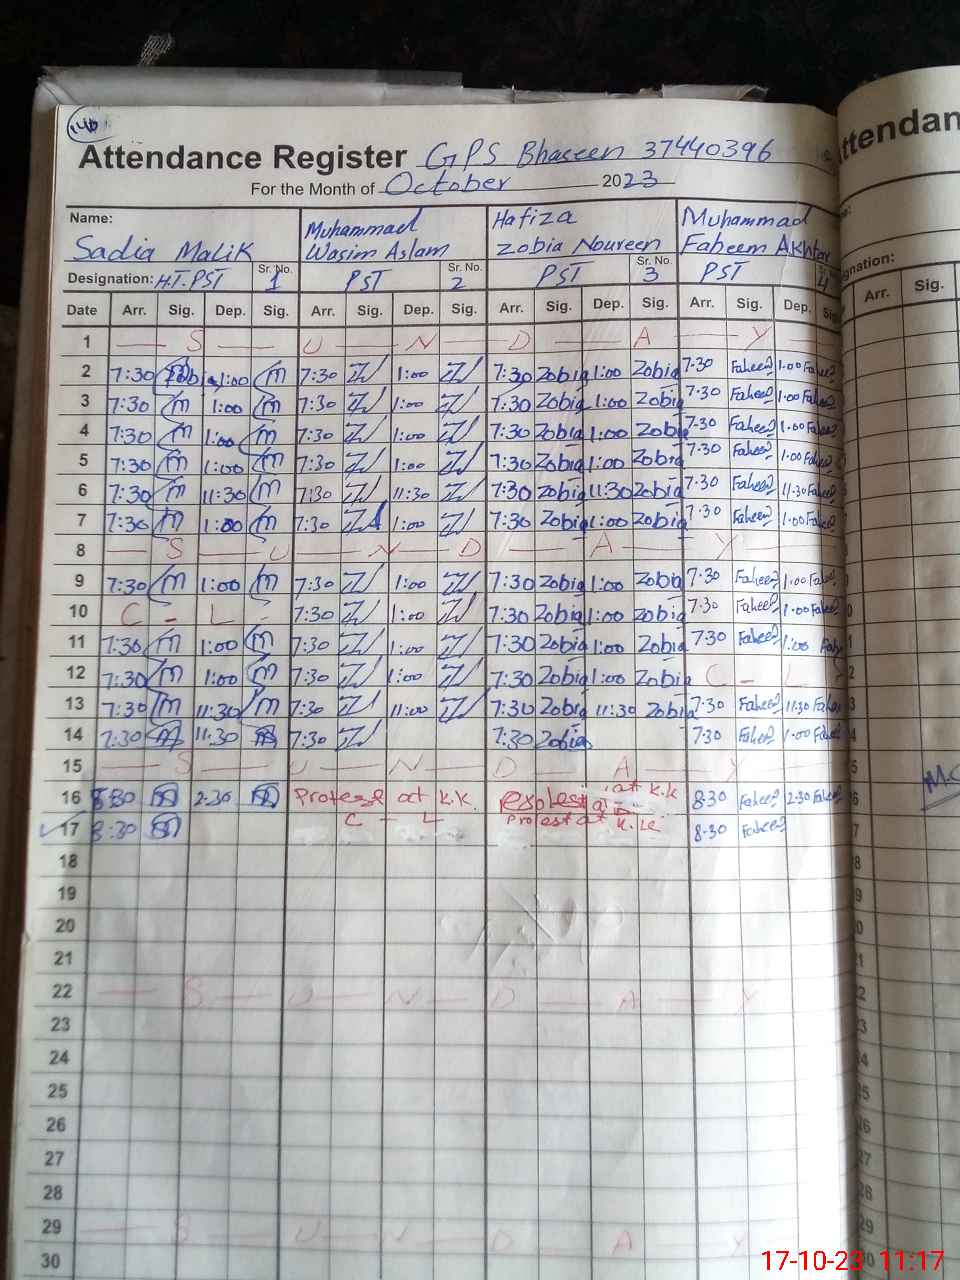 146
Attendance Register GPS Bhaseen 37440396
For the Month of October 2023
Name: Sadia Malik Muhammad Wasim Aslam Hafiza Zobia Noureen Muhammad Faheem Akhtar
Designation: H.T.PST Sr. No. 1 PST Sr. No. 2 PST Sr. No. 3 PST 4
Date Arr. Sig. Dep. Sig. Arr. Sig. Dep. Sig. Arr. Sig. Dep. Sig. Arr. Sig. Dep. Sig
1 — S — U — N — D — A — Y
2 7:30 1:00 7:30 1:00 7:30 Zobia 1:00 Zobia 7:30 Faheem 1:00 Faheem
3 7:30 1:00 7:30 1:00 7:30 Zobia 1:00 Zobia 7:30 Faheem 1:00 Faheem
4 7:30 1:00 7:30 1:00 7:30 Zobia 1:00 Zobia 7:30 Faheem 1:00 Faheem
5 7:30 1:00 7:30 1:00 7:30 Zobia 1:00 Zobia 7:30 Faheem 1:00 Faheem
6 7:30 11:30 7:30 11:30 7:30 Zobia 11:30 Zobia 7:30 Faheem 11:30 Faheem
7 7:30 1:00 7:30 1:00 7:30 Zobia 1:00 Zobia 7:30 Faheem 1:00 Faheem
8 — S — U — N — D — A — Y
9 7:30 1:00 7:30 1:00 7:30 Zobia 1:00 Zobia 7:30 Faheem 1:00 Faheem
10 C - L - 7:30 1:00 7:30 Zobia 1:00 Zobia 7:30 Faheem 1:00 Faheem
11 7:30 1:00 7:30 1:00 7:30 Zobia 1:00 Zobia 7:30 Faheem 1:00 Faheem
12 7:30 1:00 7:30 1:00 7:30 Zobia 1:00 Zobia C - L
13 7:30 11:30 7:30 11:00 7:30 Zobia 11:30 Zobia 7:30 Faheem 11:30 Faheem
14 7:30 11:30 7:30 7:30 Zobia 7:30 Faheem 1:00 Faheem
15 — S — U — N — D — A — Y
16 8:30 2:30 Protest at K.K. at K.K 8:30 Faheem 2:30 Faheem
17 8:30 C - L Protest at K.K 8:30 Faheem
18
19
20
21
22 — S — U — N — D — A — Y
23
24
25
26
27
28
29 — S — U — N — D — A — Y
30
Attendan
Designation:
Arr. Sig.
17-10-23 11:17